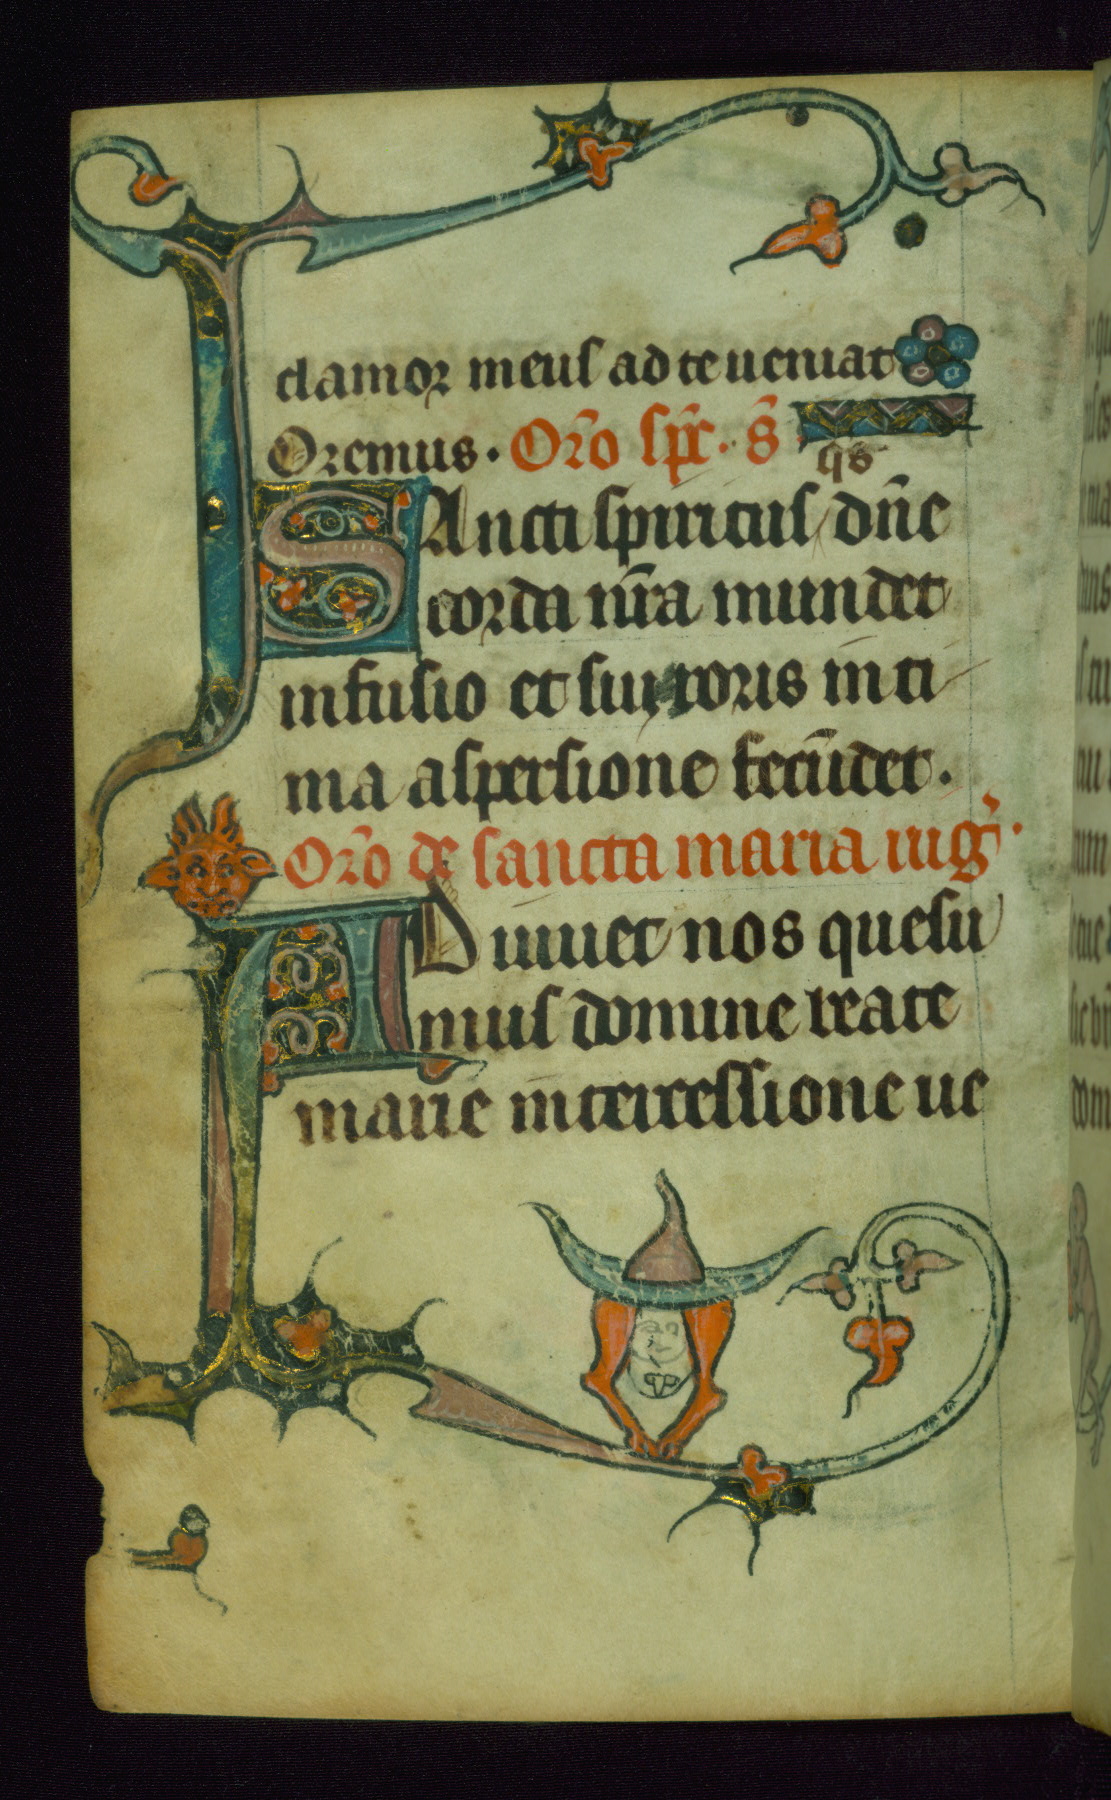 clamor meus ad te ueniat
Oremus. Or̃o sp̃c. s̃.
qs
SAncti spiritus dñe
corda nr̃a mundet
infusio et sui roris inti
ma aspersione fecũdet.
Or̃o de sancta maria uirg̃.
ADiuuet nos quesu
mus domine beate
marie intercessione ue